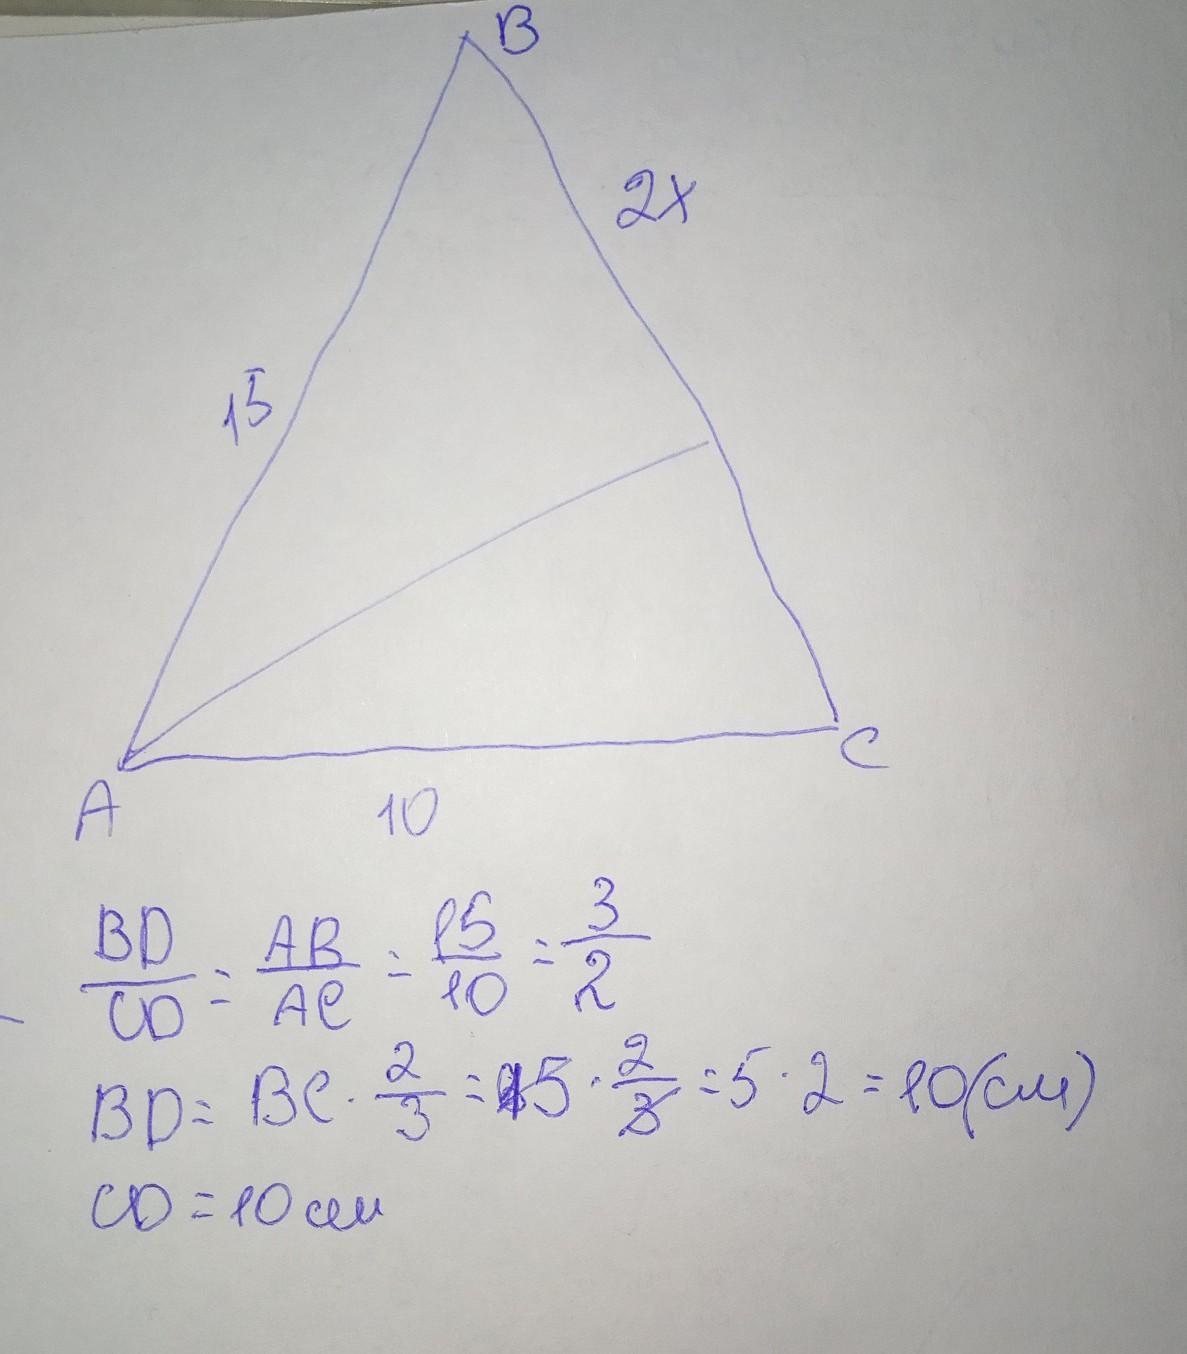 B
2x
15
C
A
10
BD/CD = AB/AC = 15/10 = 3/2
BD = BC · 2/3 = 15 · 2/3 = 5 · 2 = 10(см)
CD = 10 см